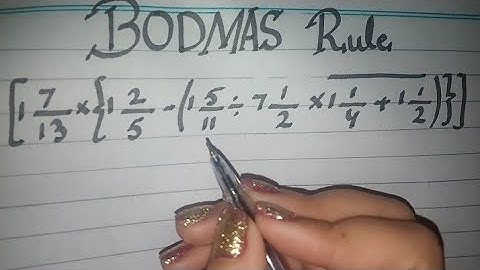 BODMAS Rule
[1 7/13 × {1 2/5 - (1 5/11 ÷ 7 1/2 × 1 1/4 + 1 1/2)}]